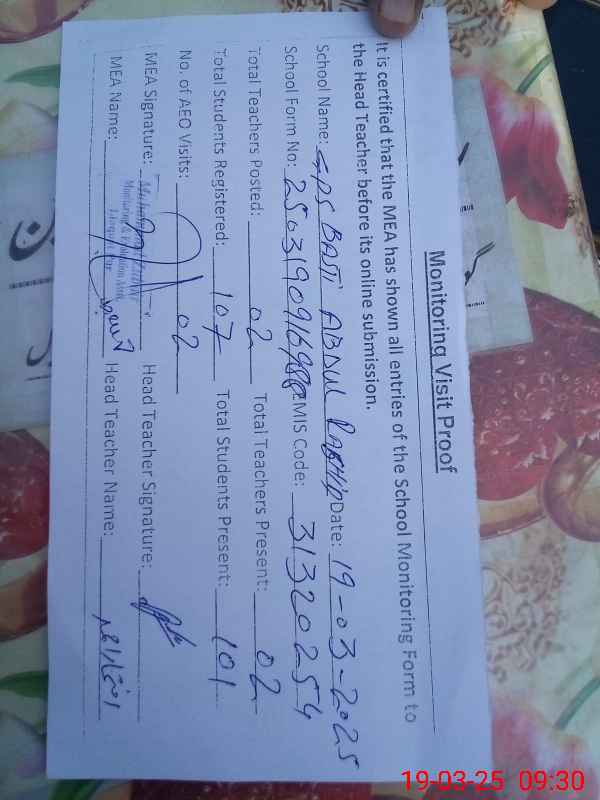 Monitoring Visit Proof
It is certified that the MEA has shown all entries of the School Monitoring Form to
the Head Teacher before its online submission.
School Name: GPS BASTI ABDUL RASHID Date: 19-03-2025
School Form No: EMIS Code: 31320254
Total Teachers Posted: 02 Total Teachers Present: 02
Total Students Registered: 107 Total Students Present: 101
No. of AEO Visits: 02
MEA Signature: Head Teacher Signature:
Monitoring & Evaluation
MEA Name: Head Teacher Name:
19-03-25 09:30